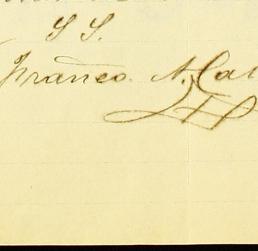 S S.
Franco. N. Cal